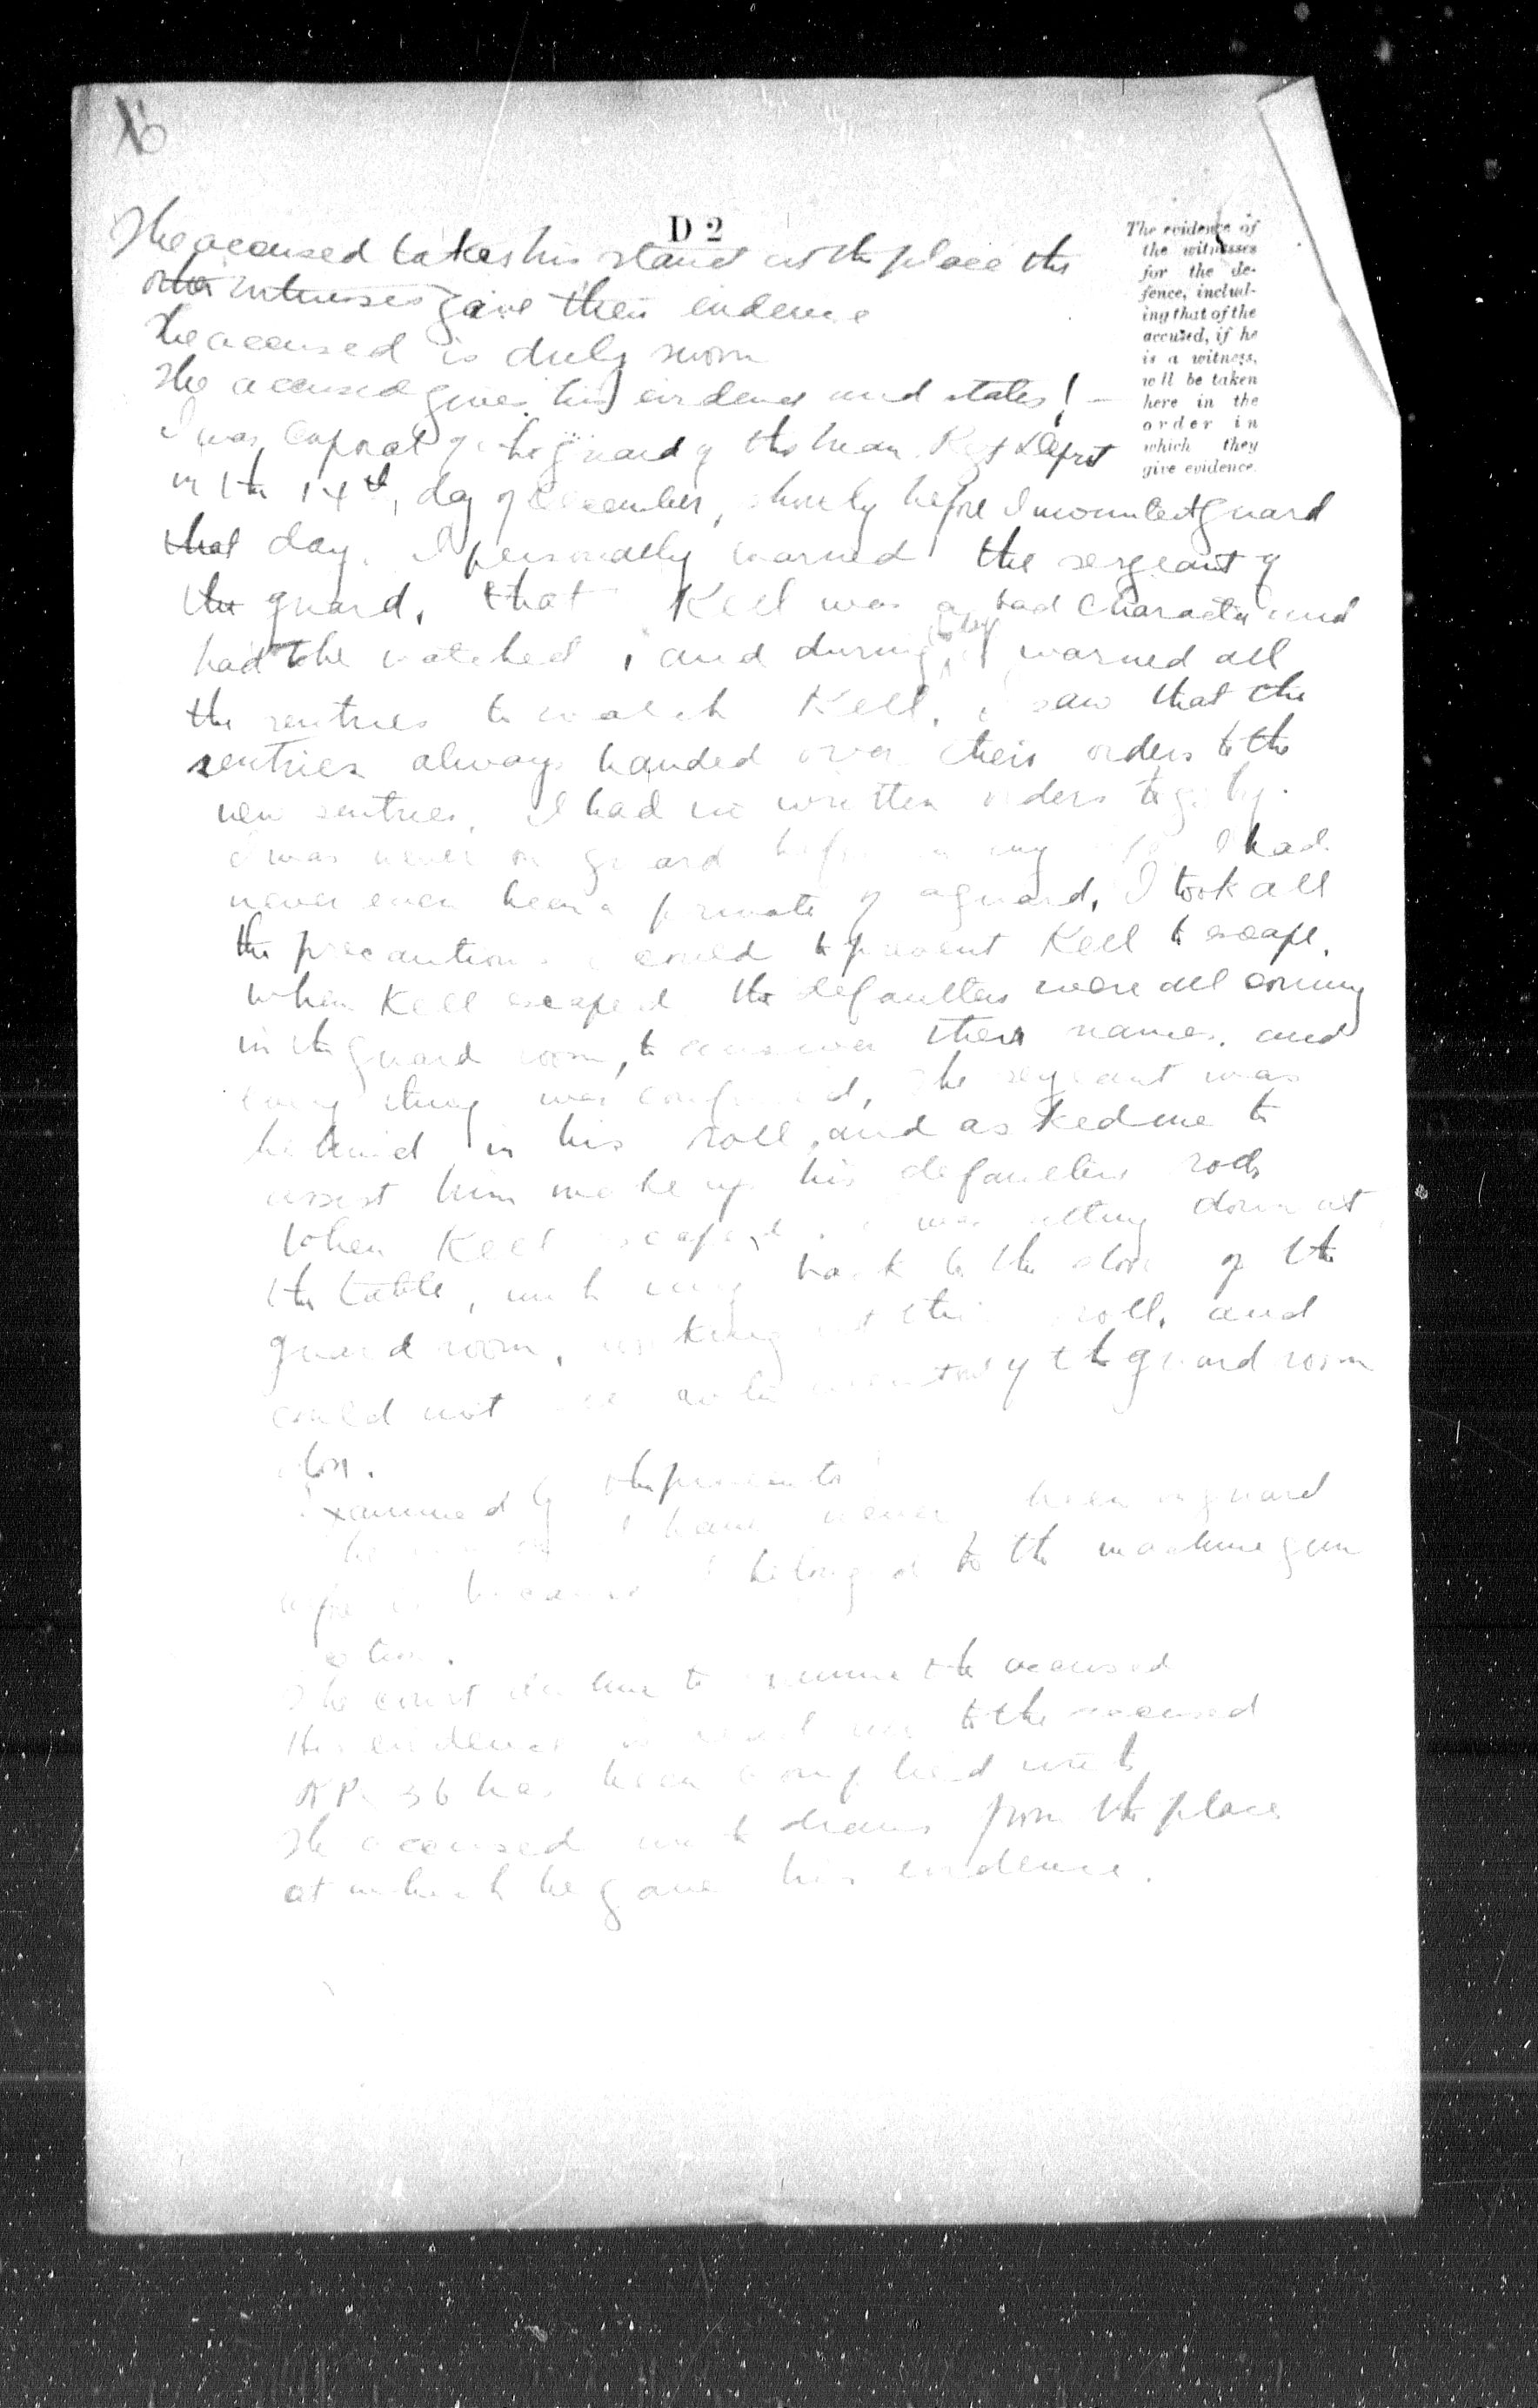 D 2
The evidence of
the witnesses
for the de-
fence, includ-
ing that of the
accused, if he
is a witness,
will be taken
here in the
order in
which they
give evidence.
The accused takes his stand at the place the
other witnesses give their evidence
The accused is duly sworn
The accused gives his evidence and states! -
I was Corporal of the guard of the Man. Regt Depot
on the 14th, day of December, shortly before I mounted guard
that day. I personally warned the sergeant of
the guard, that Kell was a bad character and
had to be watched, and during the day I warned all
the sentries to watch Kell. I saw that the
sentries always handed over their orders to the
new sentries. I had no written orders to go by.
I was never on guard before in my life I had
never even been a private of a guard, I took all
the precautions I could to prevent Kell to escape.
When Kell escaped the defaulters were all coming
in the guard room, to answer their names, and
every thing was confused, The sergeant was
behind in his roll, and asked me to
assist him make up his defaulters roll
When Kell escaped I was sitting down at
the table, with my back to the door of the
guard room, working at this roll, and
could not see who went out of the guard room
door.
Examined by the prosecutor
The reason I have never been on guard
before is because I belonged to the machine gun
section.
The court decline to examine the accused
His evidence is read over to the accused
RP 36 has been complied with
The accused withdraws from the place
at which he gave his evidence.